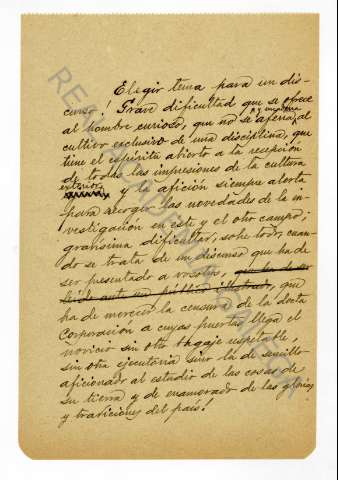 Elegir tema para un dis-
curso! Grave dificultad que se ofrece
al hombre curioso, que no se aferra, al
cultivo exclusivo de una disciplina, que
tiene el espíritu abierto a la recepción
de todas las impresiones de la cultura
exterior y la afición siempre alerta
para recoger las novedades de la in-
vestigación en este y el otro campo;
gravísima dificultad, sobre todo, cuan-
do se trata de un discurso que ha de
ser presentado a vosotros, que ha de ser
leído ante un público ilustrado, que
ha de merecer la censura de la docta
Corporación a cuyas puertas llega el
novicio sin otro bagaje respetable,
sin otra ejecutoria sino la de sencillo
aficionado al estudio de las cosas de
su tierra y de enamorado de las glorias
y tradiciones del país!
REAL ACADEMIA